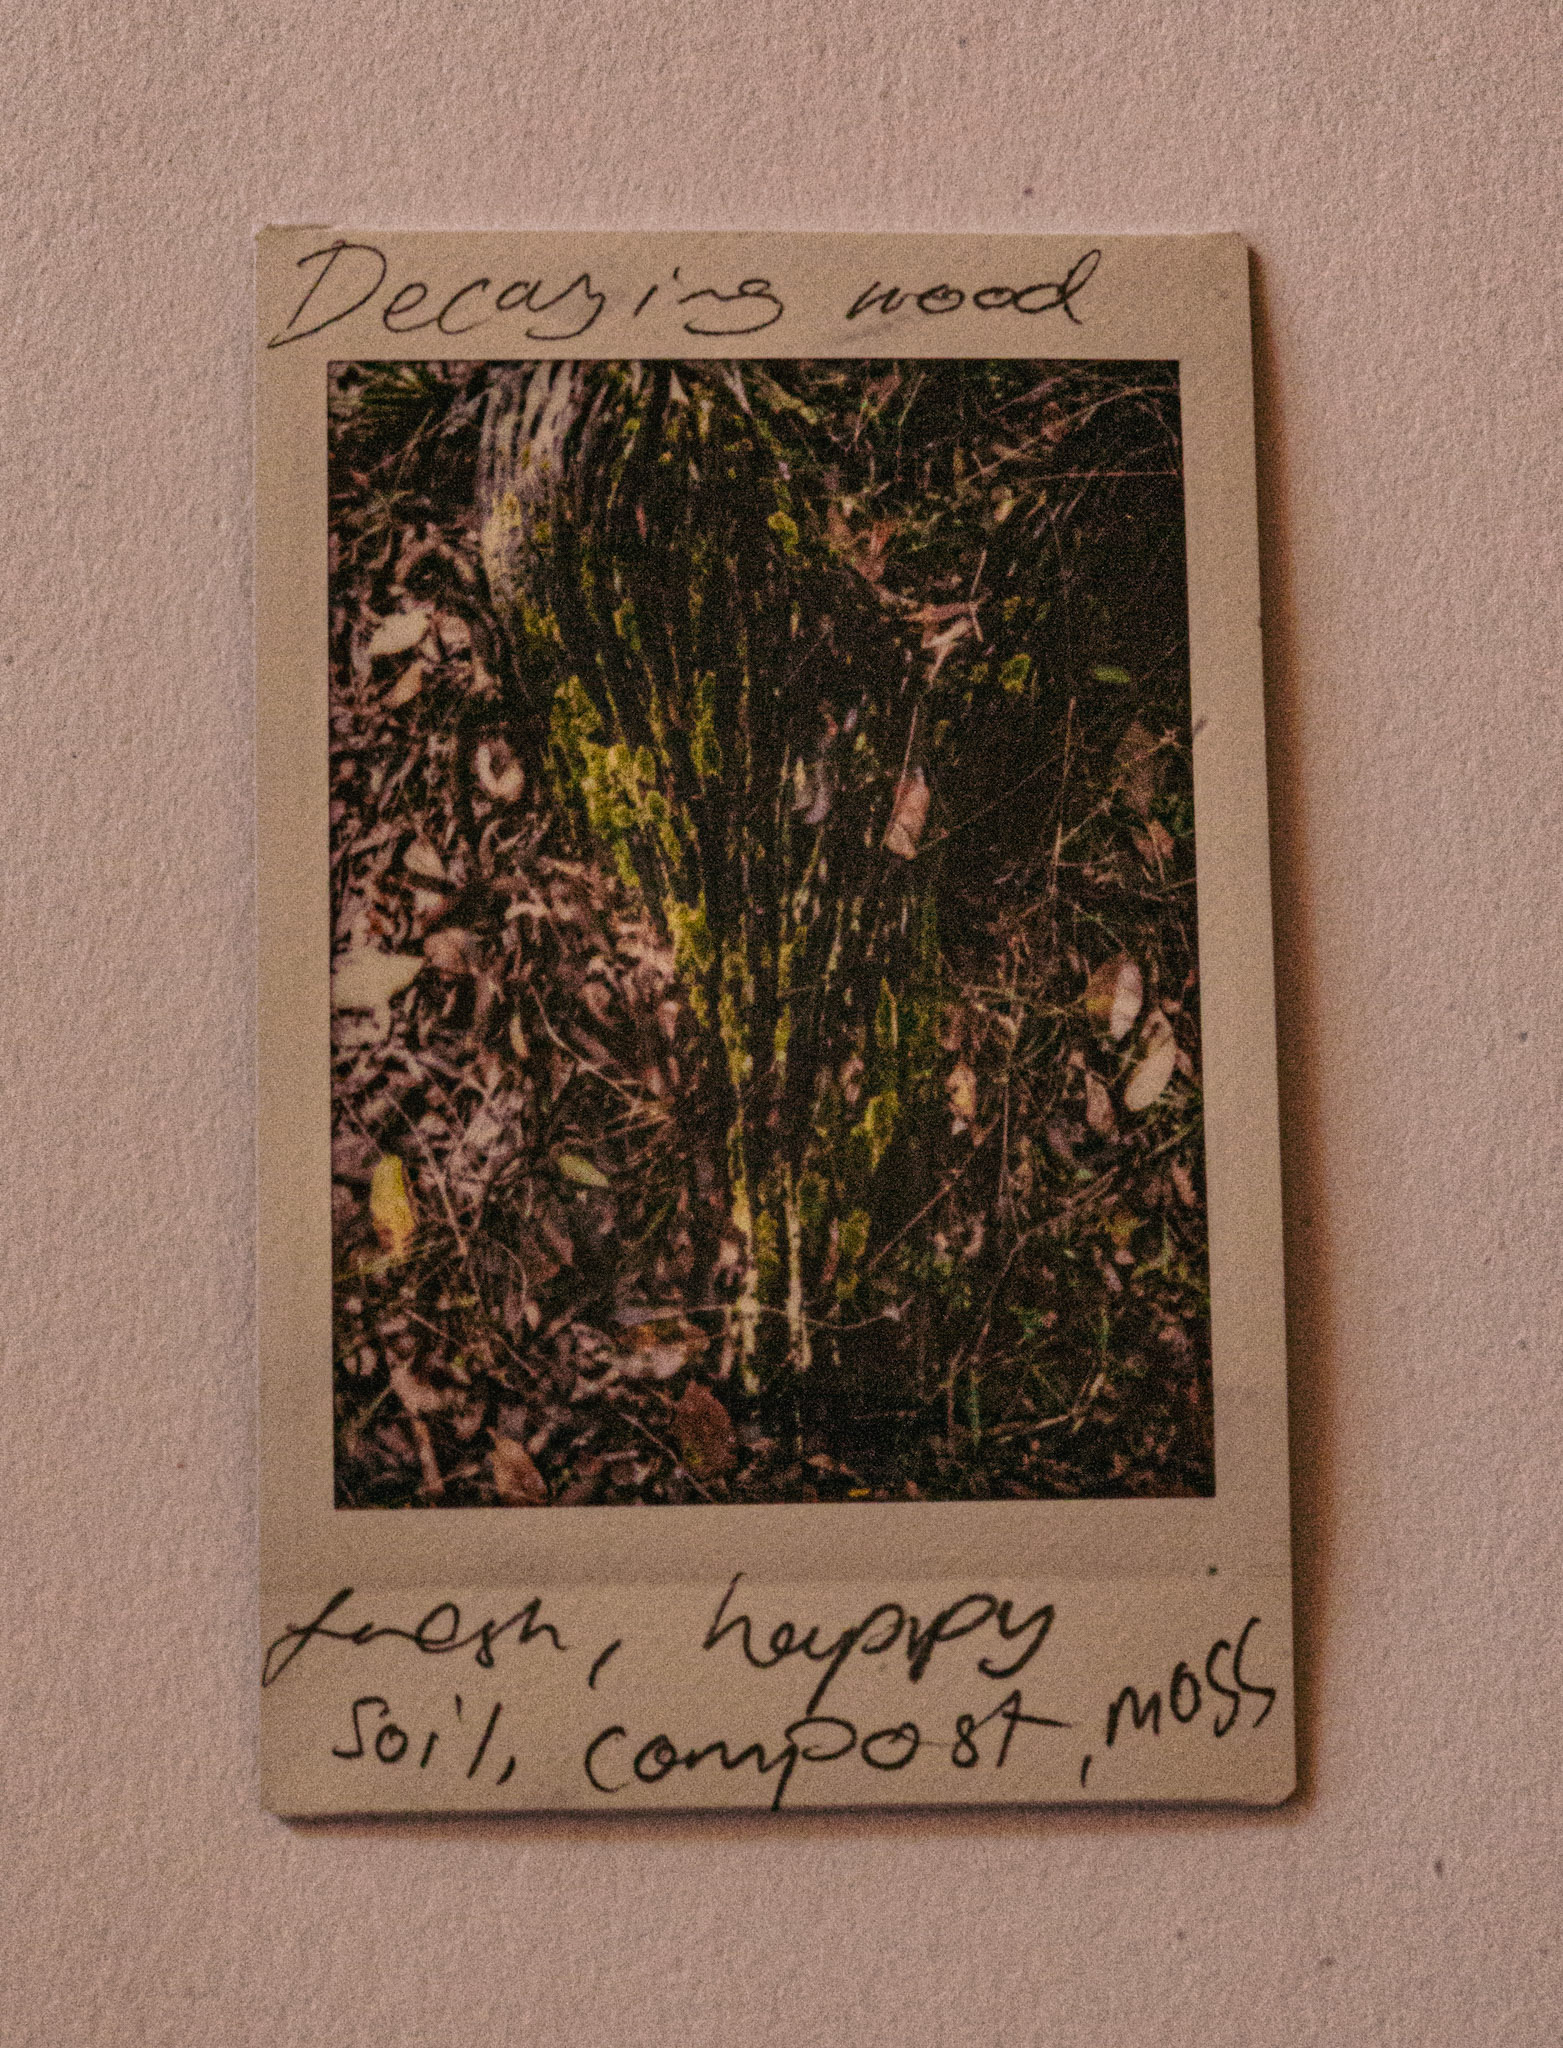 Decaying wood
fresh, happy
soil, compost, moss